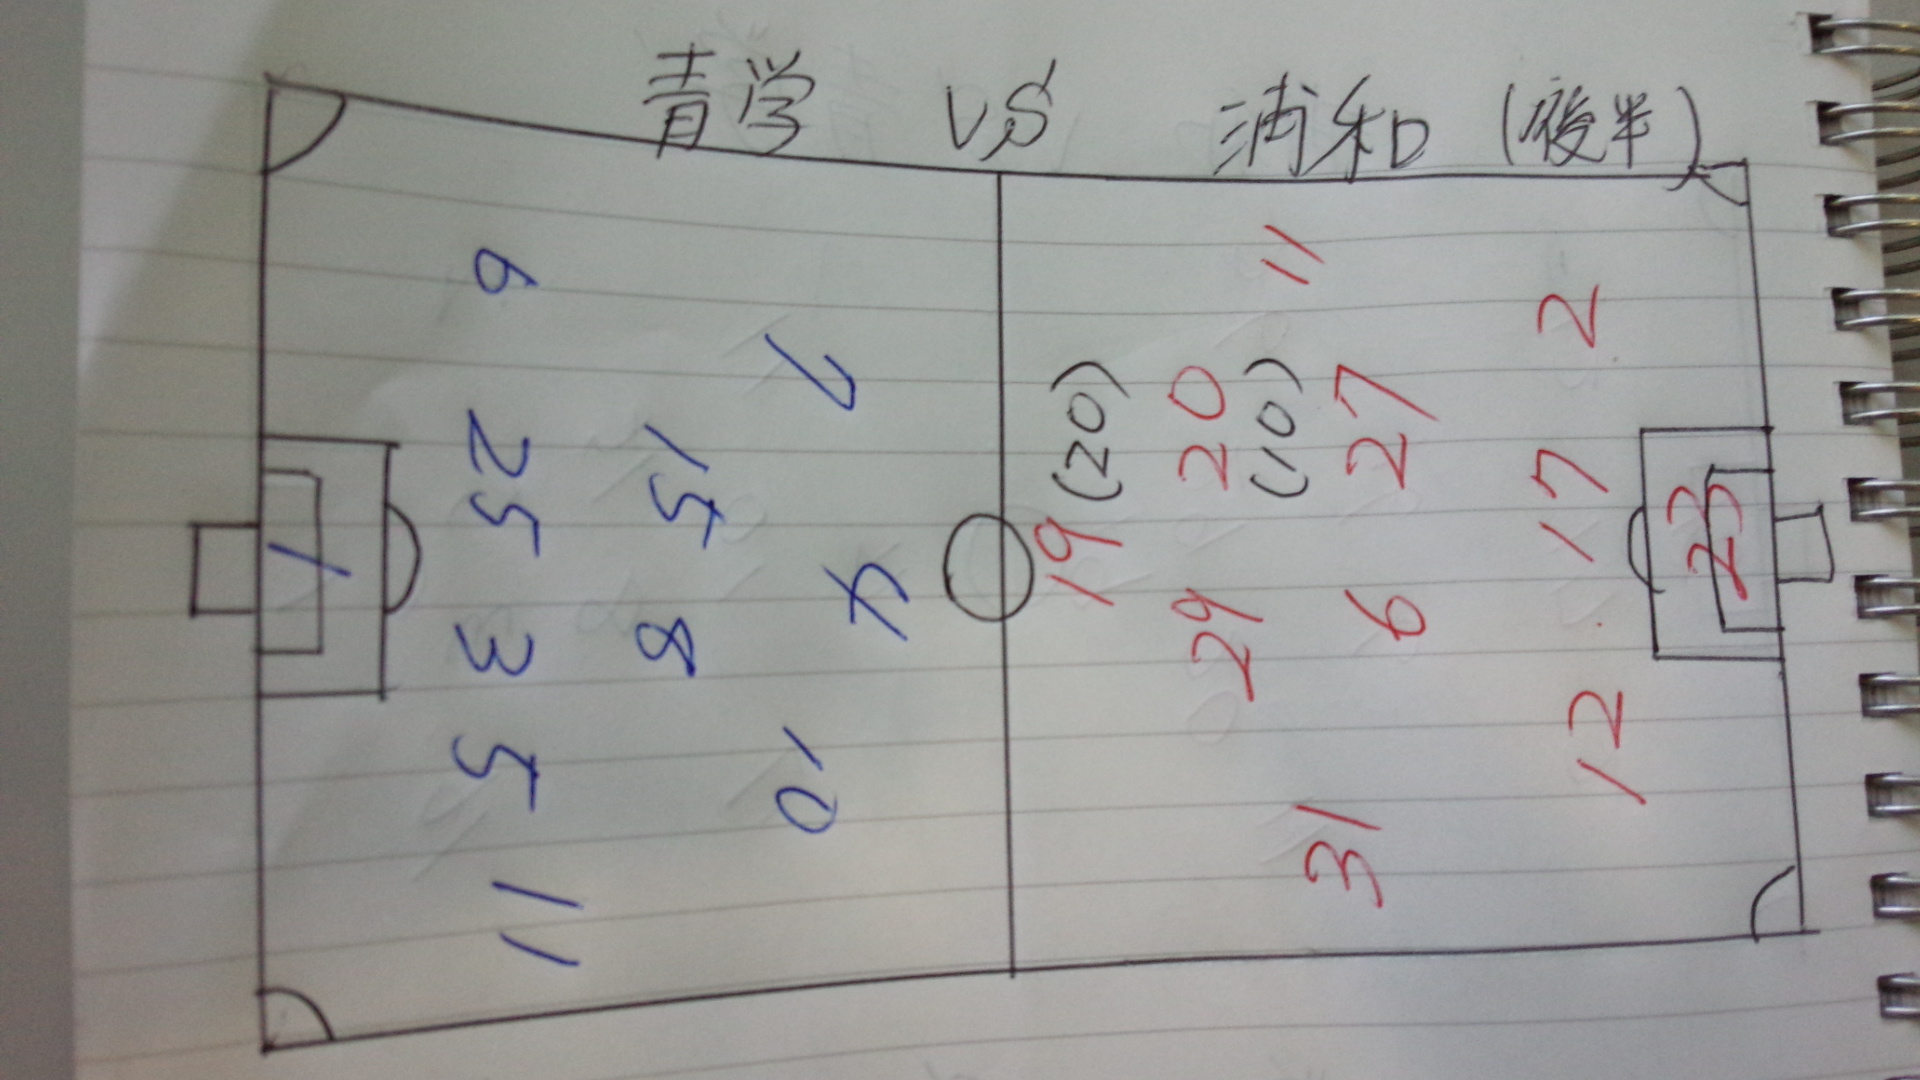 青学 VS 浦和 (後半)
6
7
25
15
1
4
3
8
5
10
11
11
2
(20)
20
(10)
27
17
19
23
29
6
12
31